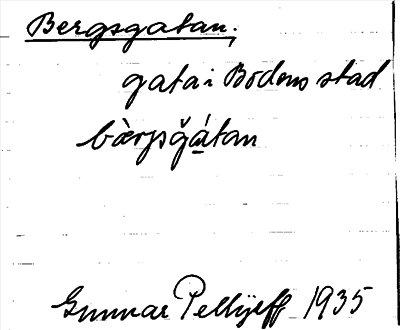 Bergsgatan;
gata i Bodens stad
bàrjsǧátan
Gunnar Pellijeff 1935